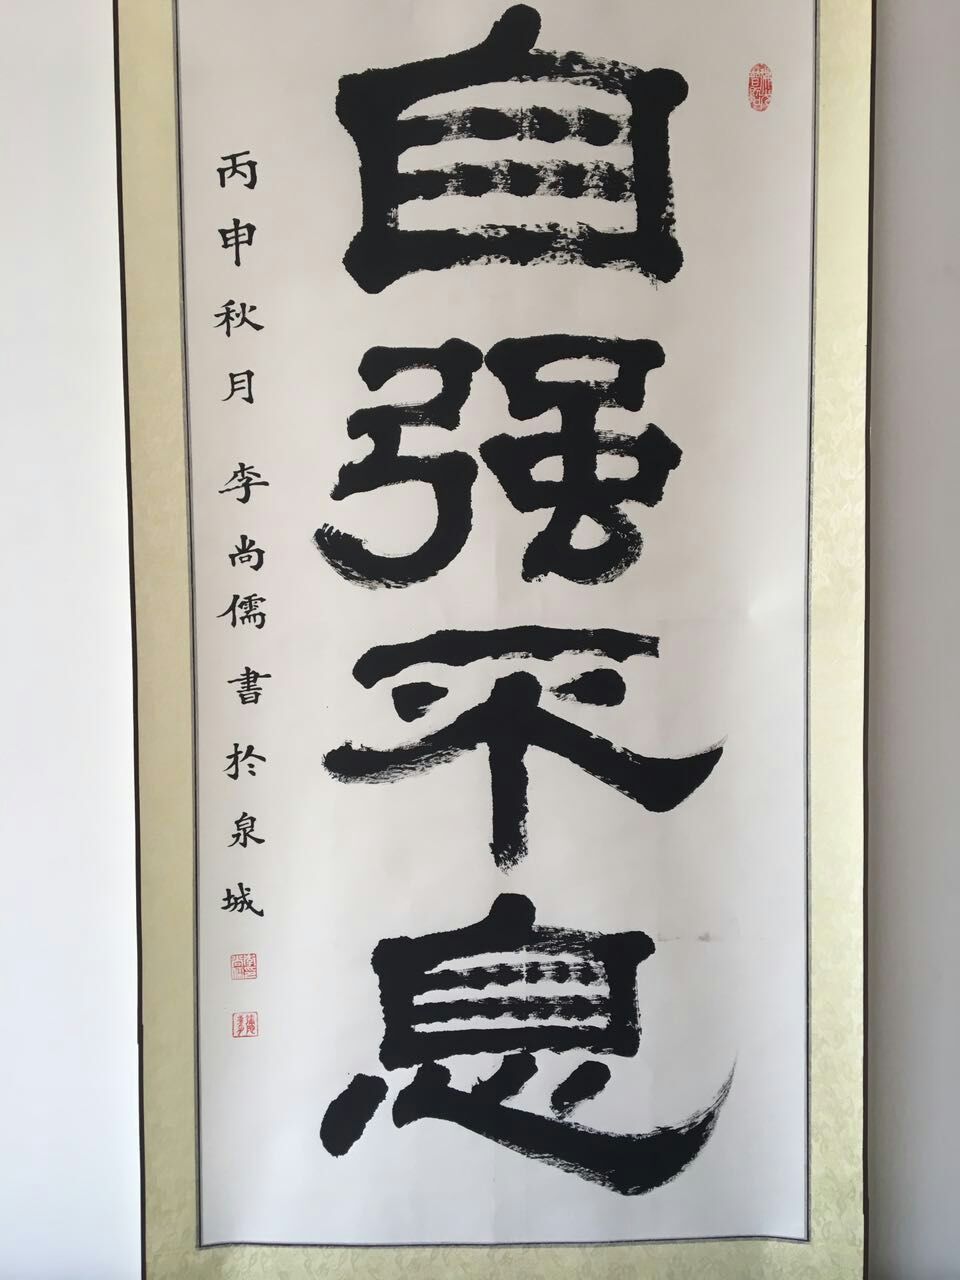 自强不息
丙申秋月李尚儒書於泉城